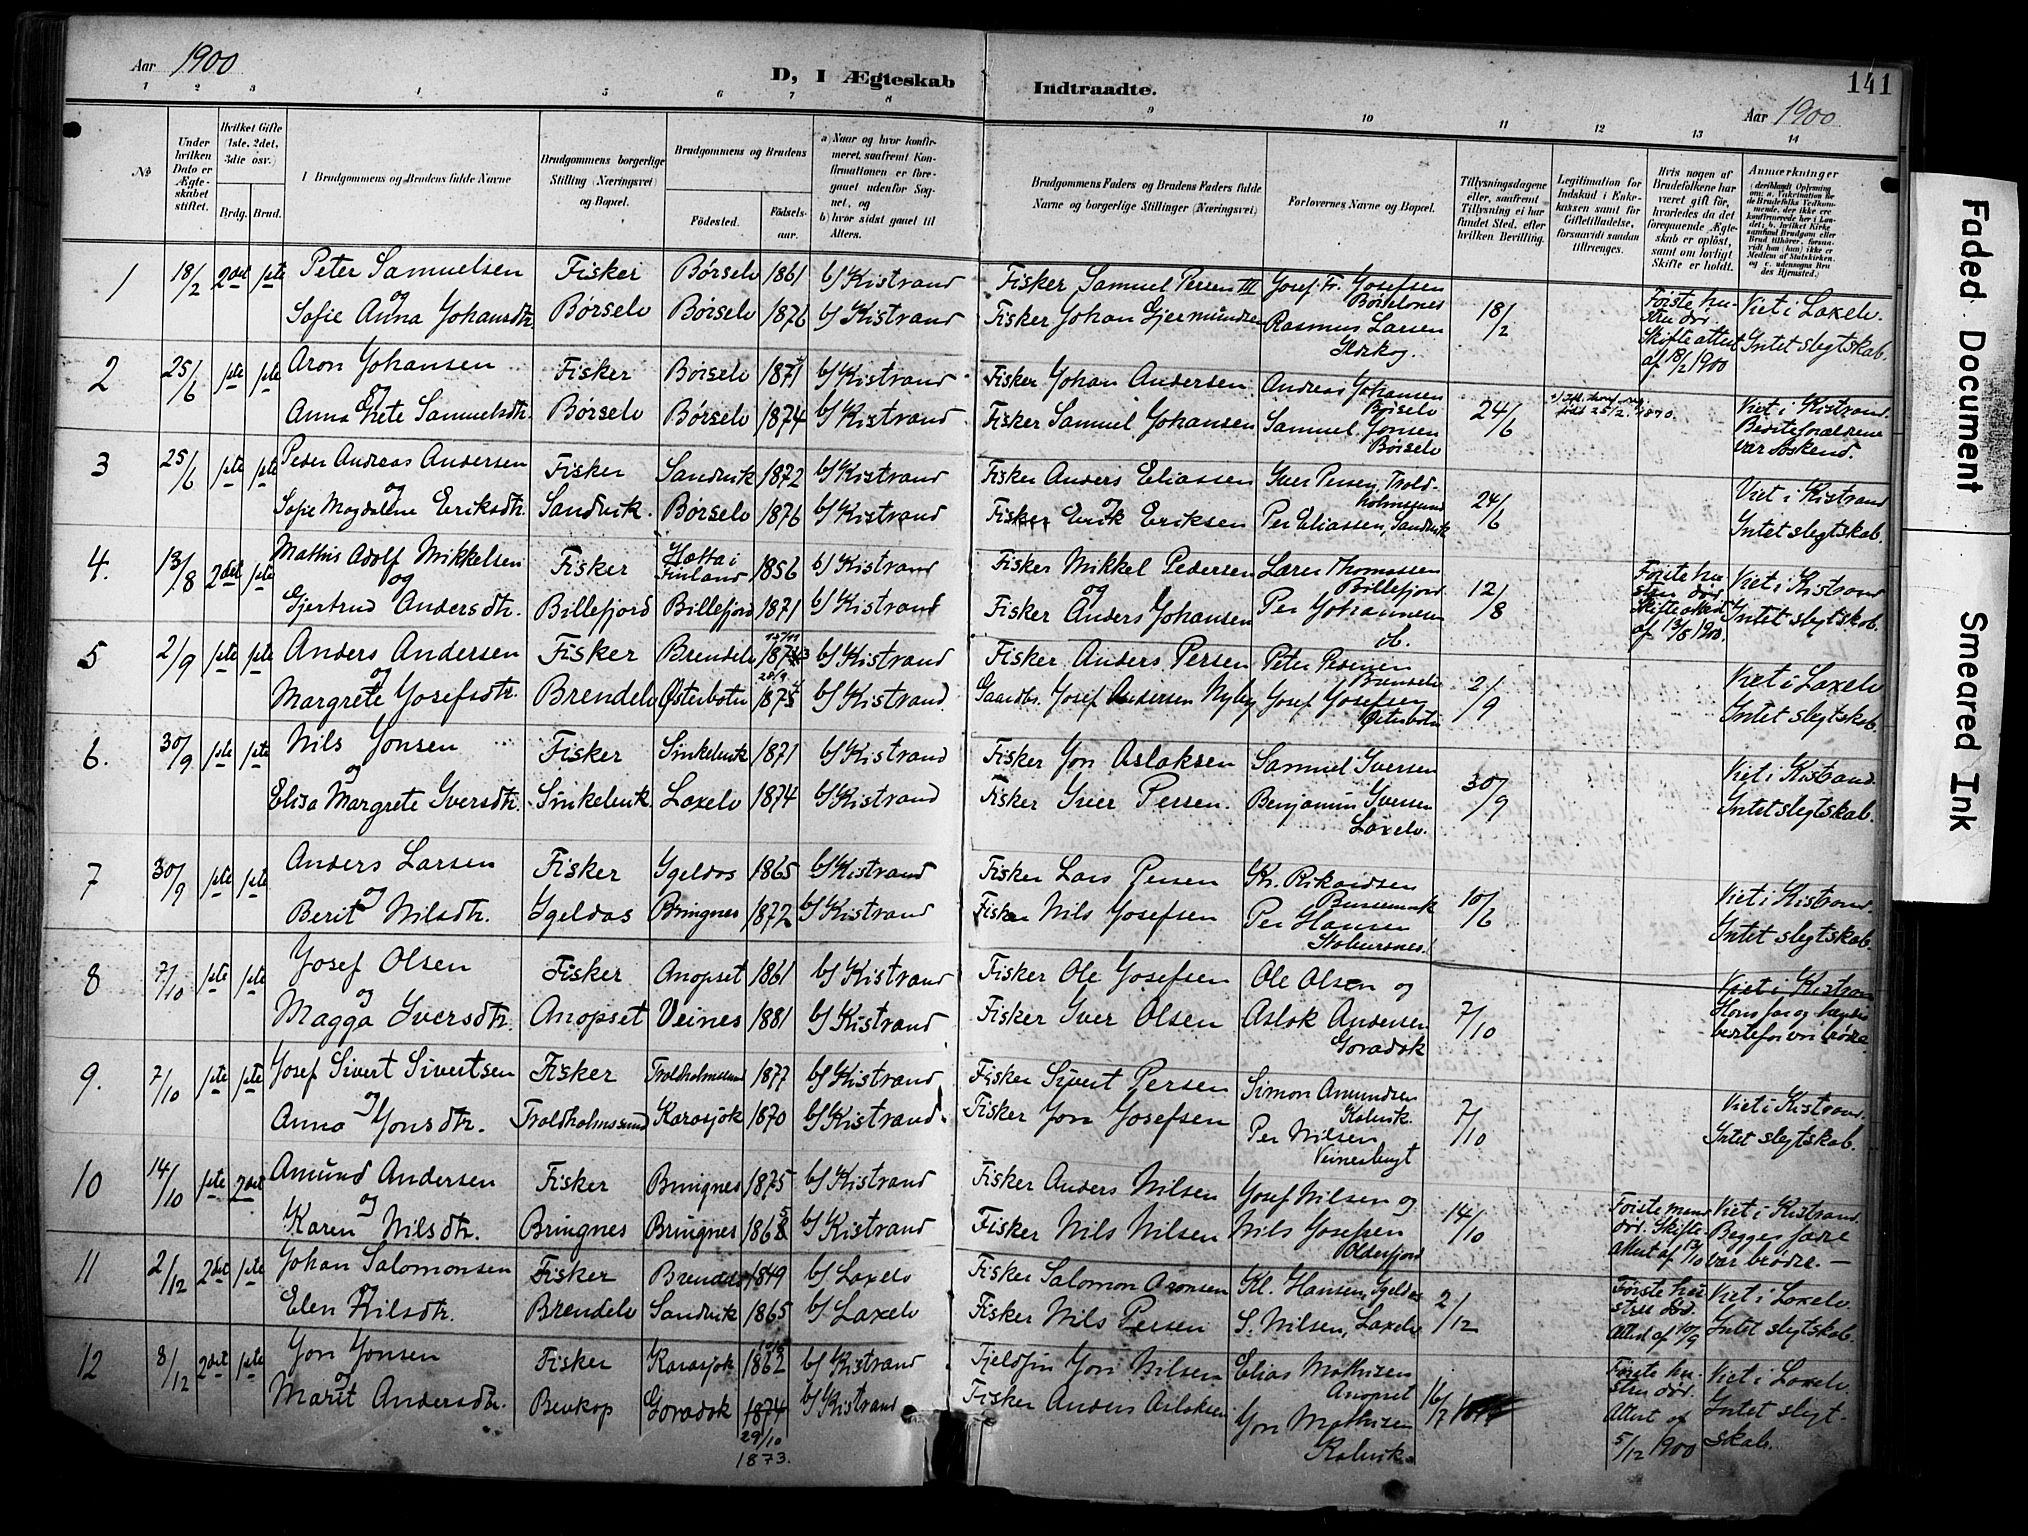 Aar 1900
D, I Ægteskab Indtraadte.
141
Aar 1900
1 2 3 4 5 6 7 8 9 10 11 12 13 14
№
Under hvilken Dato er Ægteskabet stiftet.
Hvilket Gifte (1ste, 2det, 3die osv.)
Brdg. Brud.
Brudgommens og Brudens fulde Navne
Brudgommens borgerlige Stilling (Næringsvei) og Bopæl.
Brudgommens og Brudens
Fødested. Fødselsaar.
a) Naar og hvor konfirmeret, saafremt Konfirmationen er foregaaet udenfor Sognet, og
b) hvor sidst gaaet til Alters.
Brudgommens Faders og Brudens Faders fulde Navne og borgerlige Stillinger (Næringsvei)
Forlovernes Navne og Bopæl.
Tillysningsdagene eller, saafremt Tillysning ei har fundet Sted, efter hvilken Bevilling.
Legitimation for Indskud i Enkekassen samt for Giftetilladelse, forsaavidt saadan tiltrænges.
Hvis nogen af Brudefolkene har været gift før, hvorledes da det foregaaende Ægteskab er opløst, samt om lovligt Skifte er holdt.
Anmærkninger
1 18/2 2det 1ste Peter Samuelsen Fisker Børselv 1861 b/ Kistrand Fisker Samuel Persen III Josef Fr. Josefsen Børselnes 18/2 Første hustru død. Skifte attest af 18/2 1900 Viet i Laxelv. Intet slegtskab.
og
Sofie Anna Johansdtr. Børselv Børselv 1876 b/ Kistrand Fisker Johan Gjermundsen Rasmus Larsen
2 25/6 1ste 1ste Aron Johansen Fisker Børselv 1871 b/ Kistrand Fisker Johan Andersen Andreas Johansen Børselv 24/6 Viet i Kistrand. Bedsteforældrene var søskend
og
Anna Grete Samuelsdtr. Børselv Børselv 1874 b/ Kistrand Fisker Samuel Johansen Samuel Jonsen Børselv
3 25/6 1ste 1ste Peder Andreas Andersen Fisker Sandvik 1872 b/ Kistrand Fisker Anders Eliassen Iver Persen, Troldholmsund 24/6 Viet i Kistrand Intet slegtskab.
og
Sofie Magdalene Eriksdtr. Sandvik. Børselv 1876 b/ Kistrand Fisker Erik Eriksen Per Eliassen, Sandvik
4. 13/8 2det 1ste Mathis Adolf Mikkelsen Fisker Hætta i Finland 1856 b/ Kistrand Fisker Mikkel Pedersen Lars Thomassen Billefjord 12/8 Første hustru død Skifte attest af 13/8 1900. Viet i Kistrand Intet slegtskab.
og
Gjertrud Andersdtr. Billefjord Billefjord 1871 b/ Kistrand Fisker Anders Johansen Per Johannesen
5 2/9 1ste 1ste Anders Andersen Fisker Brendelv b/ Kistrand Fisker Anders Persen Peter Pedersen Brendelv 2/9 Viet i Laxelv Intet slegtskab.
og
Margrete Josefsdtr. Brendelv Østerbotn b/ Kistrand Gaardbr. Josef Andersen Nyby Josef Josefsen Østerbotn
6. 30/9 1ste 1ste Nils Jonsen Fisker Sinkelvik 1871 b/ Kistrand Fisker Jon Aslaksen Samuel Iversen 30/9 Viet i Kistrand. Intet slegtskab.
og
Elisa Margrete Iversdtr. Sinkelvik. Laxelv 1874 b/ Kistrand Fisker Iver Persen. Benjamin Iversen Laxelv.
7 30/9 1ste 1ste Anders Larsen Fisker Igeldas 1865 b/ Kistrand Fisker Lars Persen Kr. Rikardsen 10/6 Viet i Kistrand. Intet slegtskab.
og
Berit Nilsdtr. Igeldas Bringnes 1872 b/ Kistrand Fisker Nils Josefsen Per Hansen Stabursnes.
8 7/10 1ste 1ste Josef Olsen Fisker Anopset 1861 b/ Kistrand Fisker Ole Josefsen Ole Olsen og 7/10 Viet i Kistran Hans far og hendes
og
Magga Iversdtr. Anopset Veines 1881 b/ Kistrand Fisker Iver Olsen Aslak Andersen Goradak
9. 7/10 1ste 1ste Josef Sivert Sivertsen Fisker Troldholmsund 1877 b/ Kistrand Fisker Sivert Persen Simon Amundsen Kolvik. 7/10 Viet i Kistrand. Intet slegtskab.
og
Anna Jonsdtr. Troldholmssund Karasjok 1870 b/ Kistrand. Fisker Jon Josefsen Per Nilsen Veinesbugt
10 14/10 1ste 2det Amund Andersen Fisker Bringnes 1875 b/ Kistrand Fisker Anders Nilsen Josef Nilsen og 14/10 Første mand død. Skifteattest af Viet i Kistrand. Begges fædre var brødre. —
og
Karen Nilsdtr. Bringnes Bringnes b/ Kistrand Fisker Nils Nilsen Nils Josefsen Olderfjord
11 2/12 2det 1ste Johan Salomonsen Fisker Brendelv 1849 b/ Laxelv Fisker Salomon Aronsen Kl. Hansen, Igeldas 2/12 Første hustru død. Attest af 10/9 Viet i Laxelv. Intet slegtskab.
og
Elen Nilsdtr. Brendelv Sandvik 1865 b/ Laxelv Fisker Nils Persen S. Nilsen, Laxelv
12 8/12 2det 1ste Jon Jonsen Fisker Karasjok 1862 b/ Kistrand Fjeldfin Jon Nilsen Elias Mathisen Anopset 16/7 Første hustru død. Attest af 5/12 1900 Viet i Laxelv. Intet slegtskab.
og
Marit Andersdtr. Bevkop Goradak 1874 b/ Kistrand Fisker Anders Aslaksen Jon Mathisen Kolvik.
29/10
1873.
Faded Document
Smeared Ink